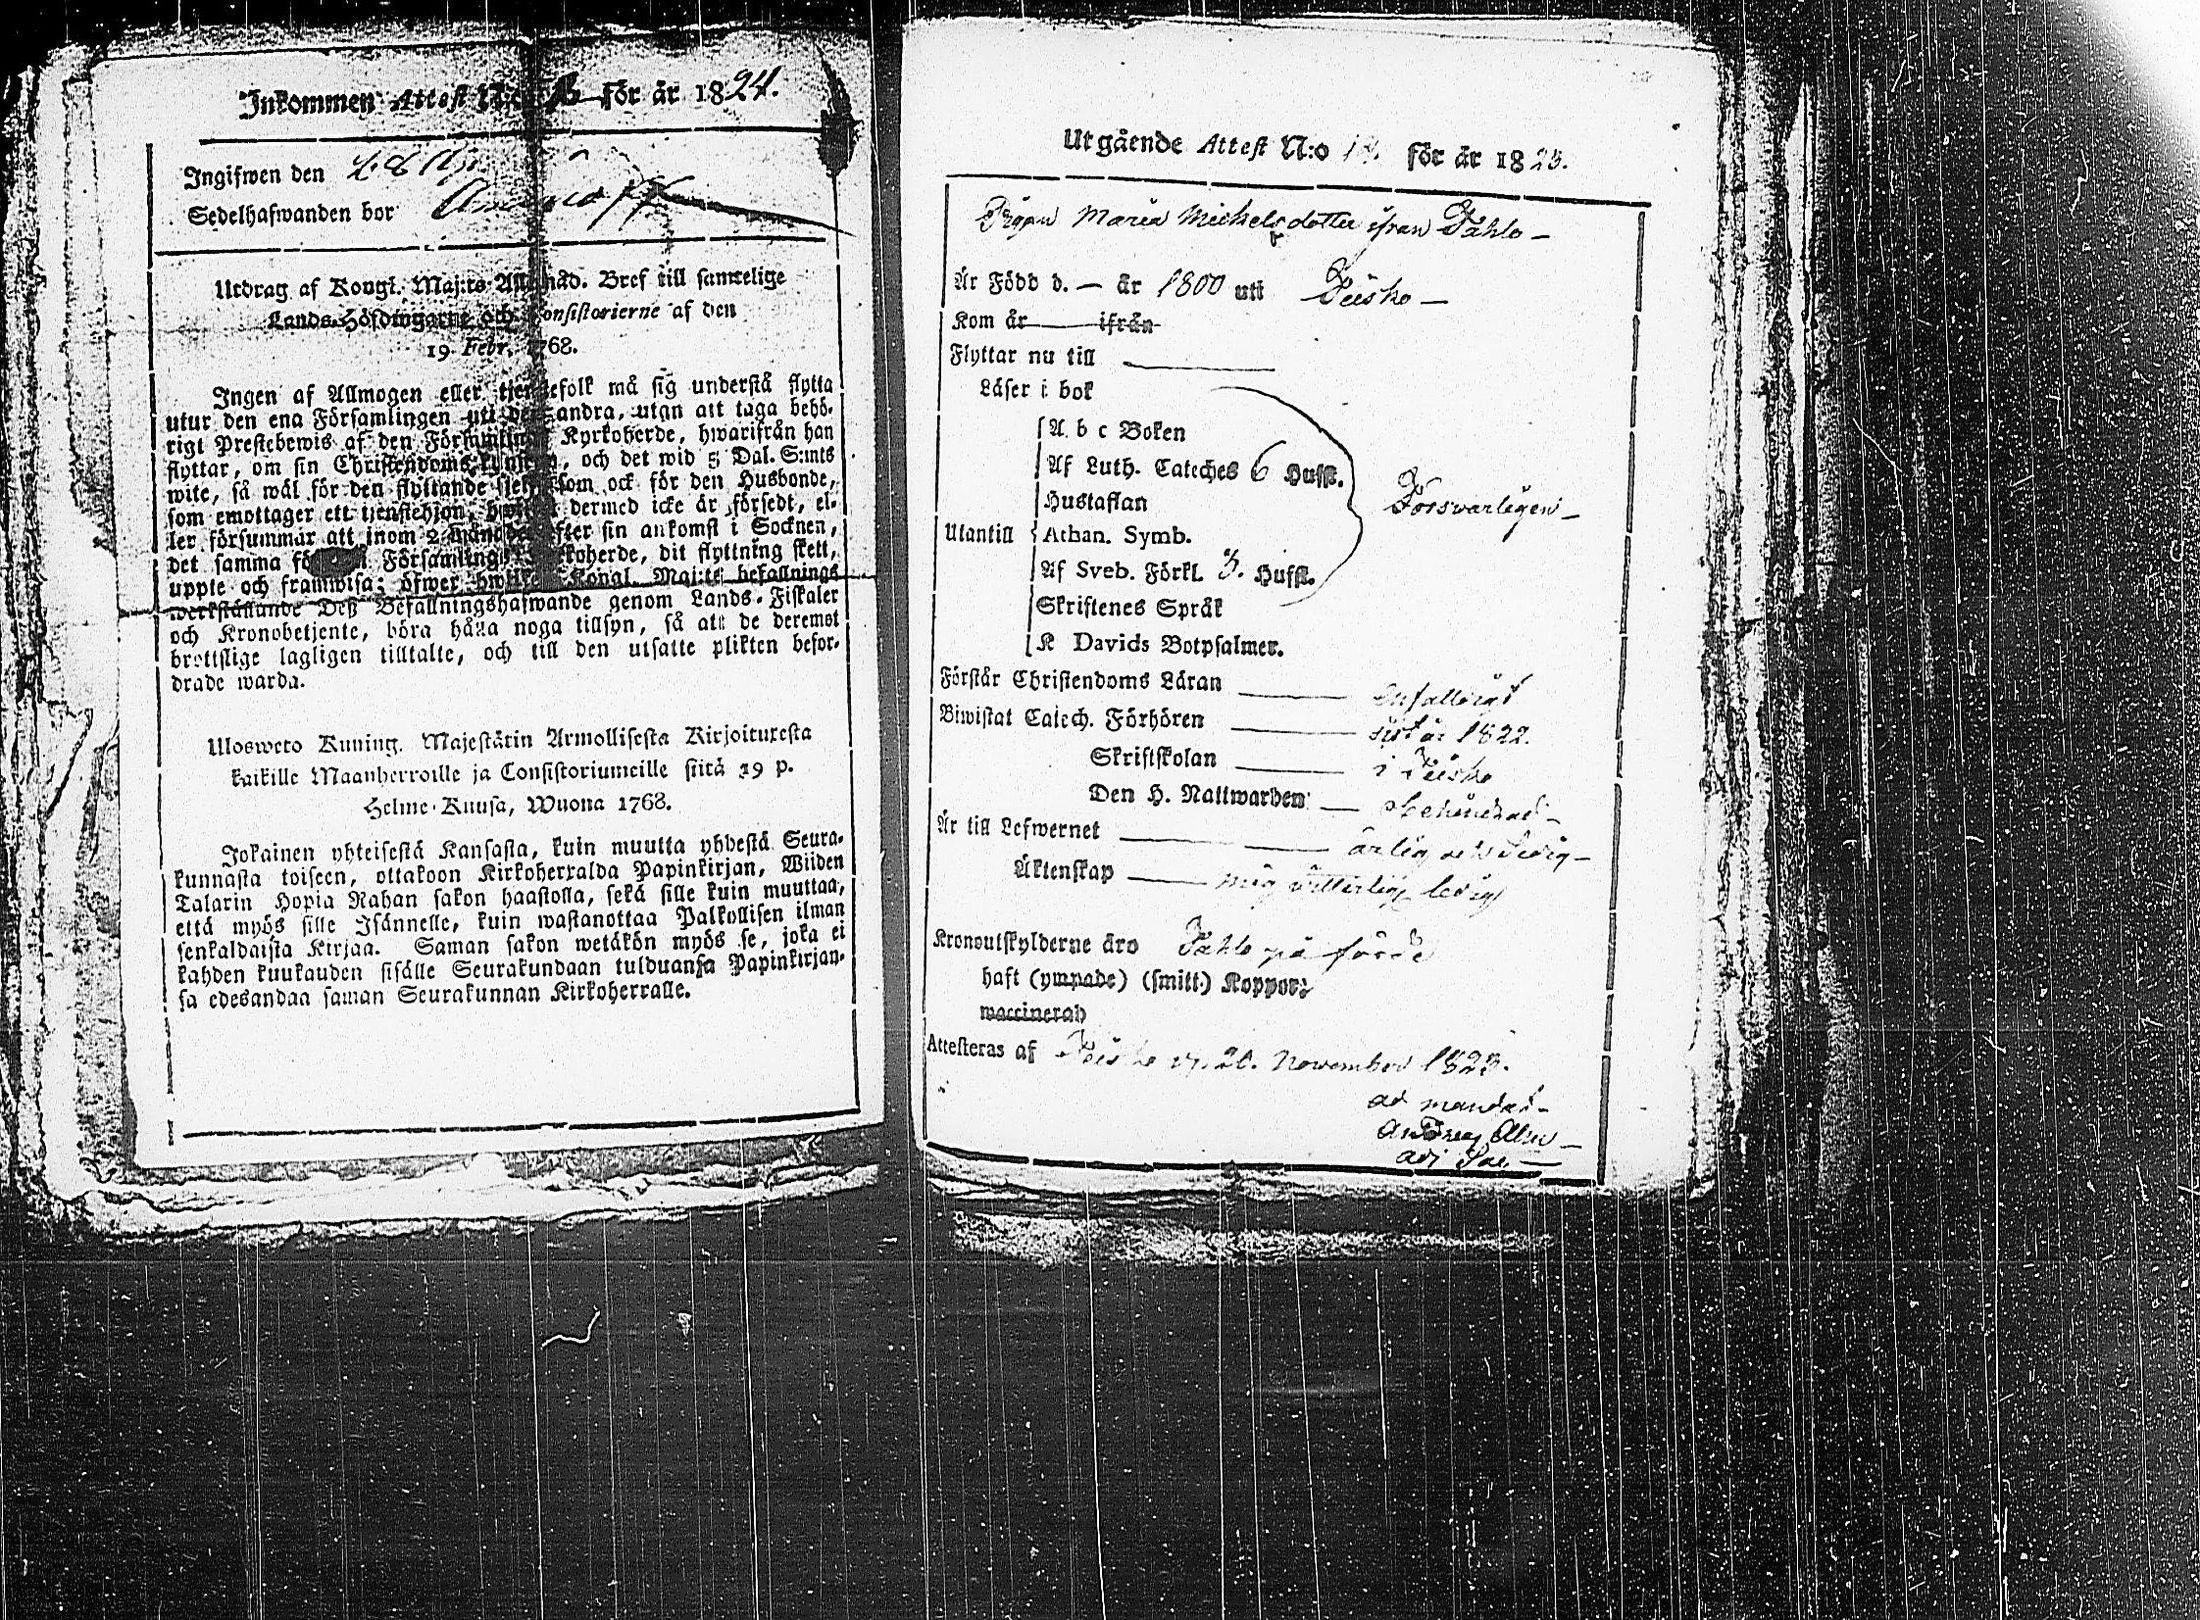 Inkommen Attest N:o för år 1824.
Ingifwen den
Sedelhafwanden bor
Utdrag af Kongl. Maj:ts Allernåd. Bref till samtelige
Lands-Höfdingarne och Consistorierne af den
19 Febr. 1768.
Ingen af Allmogen eller tjenstefolk må sig understå flytta
utur den ena Församlingen uti den andra, utan att taga behö-
rigt Prestebewis af den Församlings Kyrkoherde, hwarifrån han
flyttar, om sin Christendoms kunskap, och det wid 5 Dal. S:mts
wite, så wäl för den flyttande sjelf som ock för den Husbonde,
som emottager ett tjenstehjon, hwilket dermed icke är försedt, el-
ler försummar att inom 2 månader efter sin ankomst i Socknen,
det samma för Församlings Kyrkoherde, dit flyttning skett,
uppte och framwisa; öfwer hwilken Kongl. Maj:ts befallnings
werkställande Deß Befallningshafwande genom Lands-Fiskaler
och Kronobetjente, böra hålla noga tillsyn, så att de deremot
brottslige lagligen tilltalte, och till den utsatte plikten befor-
drade warda.
Ulosweto Kuning. Majestätin Armollisesta Kirjoituxesta
kaikille Maanherroille ja Consistoriumeille siitä 19 p.
Helme-Kuusa, Wuona 1768.
Jokainen yhteisestä Kansasta, kuin muutta yhdestä Seura-
kunnasta toiseen, ottakoon Kirkoherralda Papinkirjan, Wiiden
Talarin Hopia Rahan sakon haastolla, sekä sille kuin muuttaa,
että myös sille Isännelle, kuin wastanottaa Palkollisen ilman
senkaldaista Kirjaa. Saman sakon wetäkön myös se, joka ei
kahden kuukauden sisälle Seurakundaan tulduansa Papinkirjan-
sa edesandaa saman Seurakunnan Kirkoherralle.
Utgående Attest N:o för är 1823.
Pigan Maria Michelsdotter ifran Pahlo –
Är Född d. – år 1800 uti Peisko –
Kom år ifrån
Flyttar nu till
Läser i bok
A b c Boken
Af Luth. Cateches 6 Hufst.
Hustaflan
Försvarligen –
Utantill Athan. Symb.
Af Sveb. Förkl. 3. Hufst.
Skriftenes Språk
K Davids Botpsalmer.
Förstår Christendoms Läran enfalldigt
Biwistat Catech. Förhören sist år 1822.
Skriftskolan i Peisko
Den H. Nattwarden
Är till Lefwernet ärlig och sedig –
Äktenskap mig witterlig ledig
Kronoutskylderne äro Pahlo på förde
haft (ympade) (smitt.) Koppor;
waccinerad
Attesteras af November 1823.
ad mandat.
Andreas Alm –